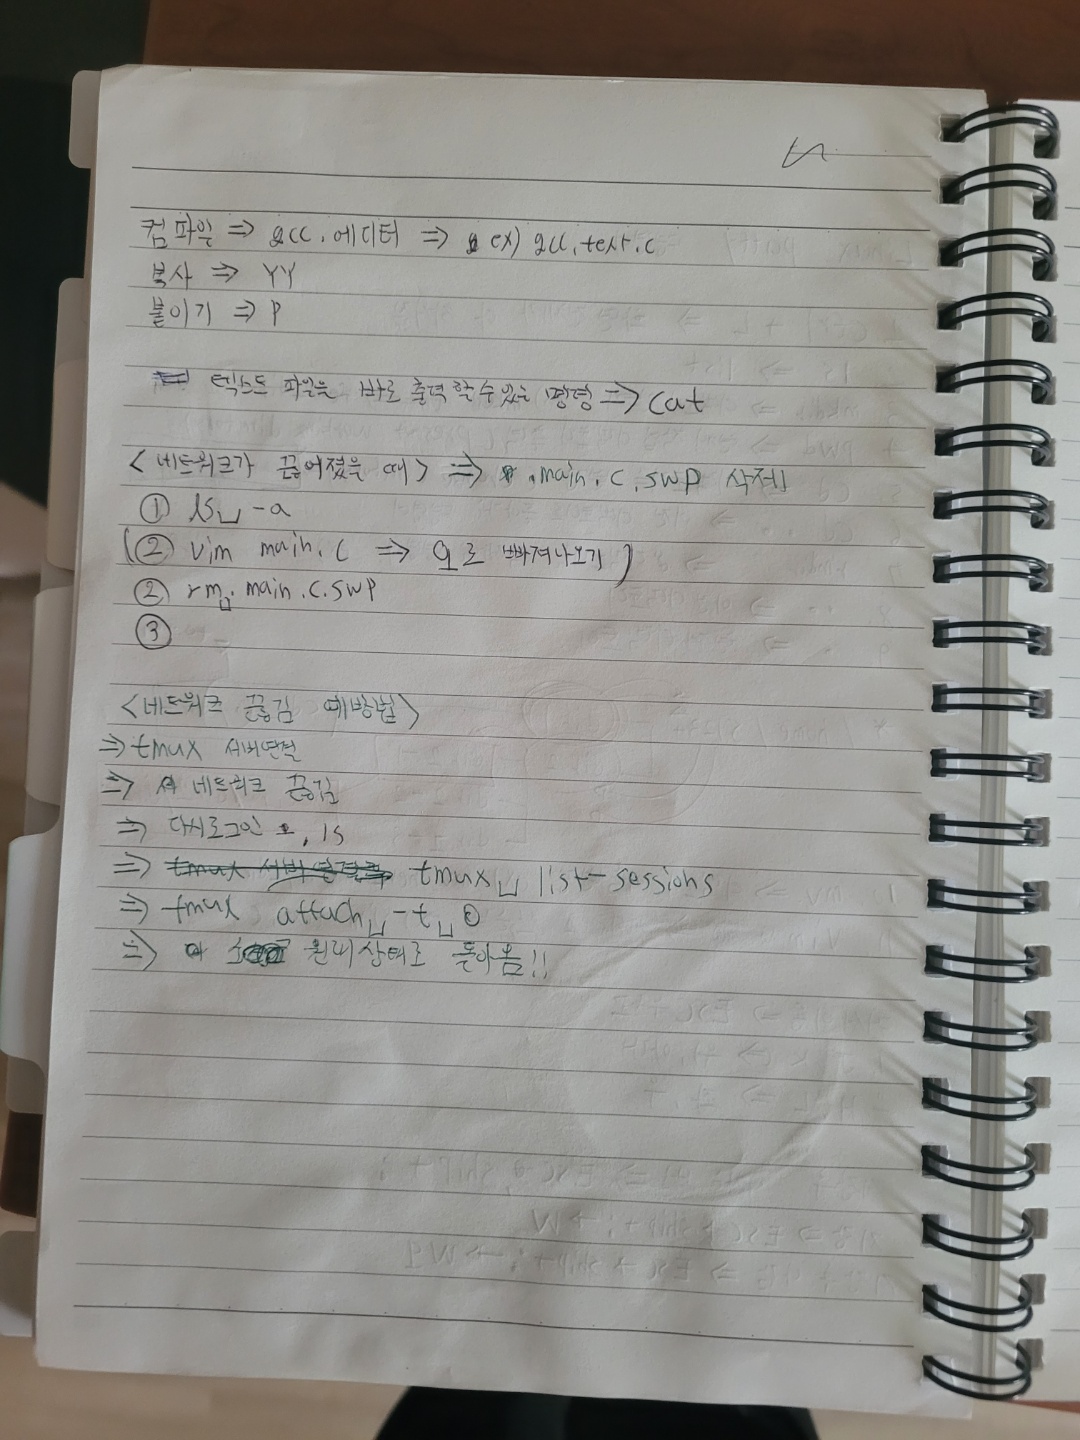 컴파일 => gcc.에디터 => ex) gcc.text.c
복사 => YY
붙이기 => P
텍스트 파일을 바로 출력할수있는 명령 => cat
<네트워크가 끊어졌을 때> => .main.c.swp 삭제
① ls␣-a
(② vim main.c => q로 빠져나오기)
② rm␣.main.c.swp
③
<네트워크 끊김 예방법>
=> tmux 서버연결
=> 네트워크 끊김
=> 다시로그인, ls
=> tmux␣list-sessions
=> tmux attach␣-t␣0
=> 원래상태로 돌아옴!!